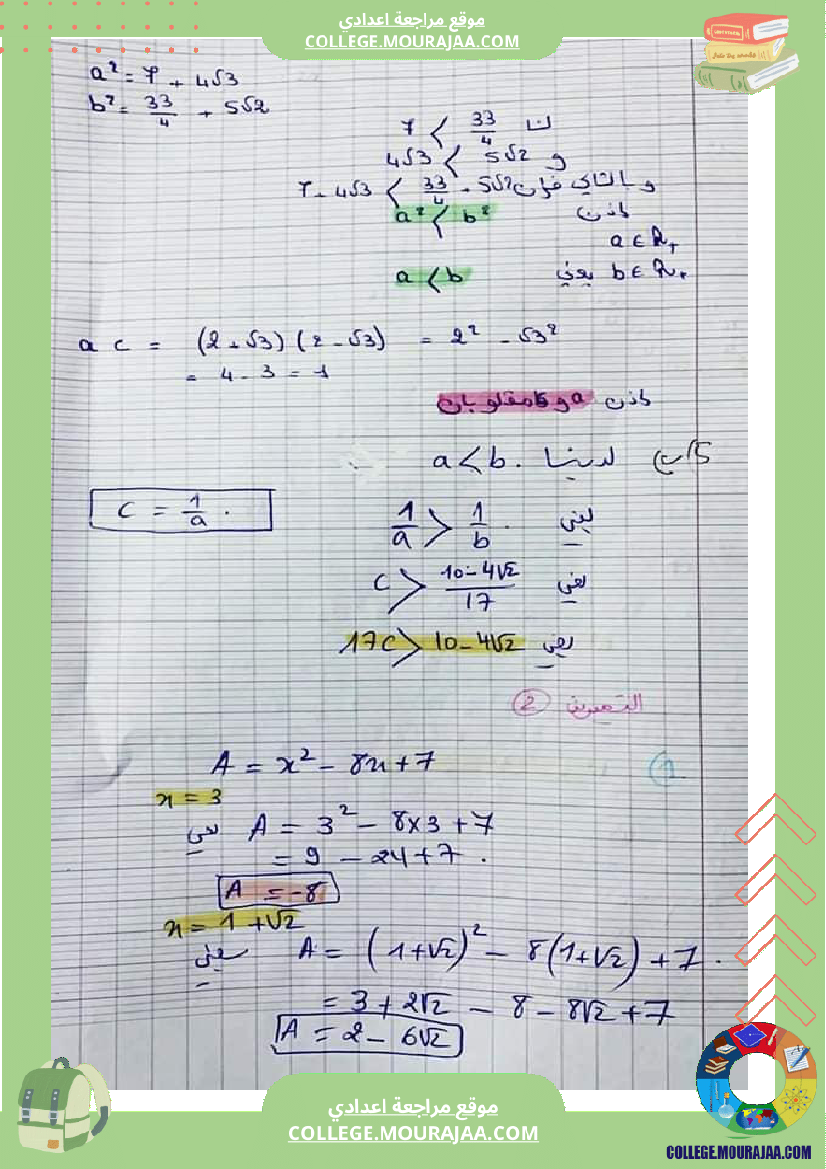 موقع مراجعة اعدادي
COLLEGE.MOURAJAA.COM
a² = 7 + 4√3
b² = 33/4 + 5√2
7 < 33/4
4√3 < 5√2 و
و بالتالي فإن 7 + 4√3 < 33/4 + 5√2
إذن a² < b²
a ∈ ℝ₊
b ∈ ℝ₊ يعني a < b
a c = (2 + √3) (2 - √3) = 2² - √3²
= 4 - 3 = 1
إذن a و c مقلوبان
5/ب) لدينا a < b.
يعني 1/a > 1/b.
C = 1/a.
يعني C > (10 - 4√2)/17
يعني 17C > 10 - 4√2
التمرين 2
1
A = x² - 8x + 7
x = 3
يعني A = 3² - 8×3 + 7
= 9 - 24 + 7.
A = -8
x = 1 + √2
يعني A = (1+√2)² - 8(1+√2) + 7.
= 3 + 2√2 - 8 - 8√2 + 7
A = 2 - 6√2
موقع مراجعة اعدادي
COLLEGE.MOURAJAA.COM
COLLEGE.MOURAJAA.COM